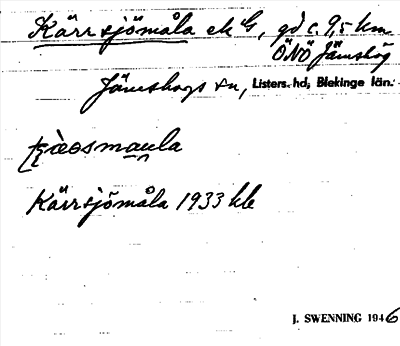 Kärrsjömåla ek G, gd c. 9,5 km
ÖNÖ Jämshög
Jämshogs sn, Listers hd, Blekinge län.
Kärrsjömåla 1933 hle
J. SWENNING 1946